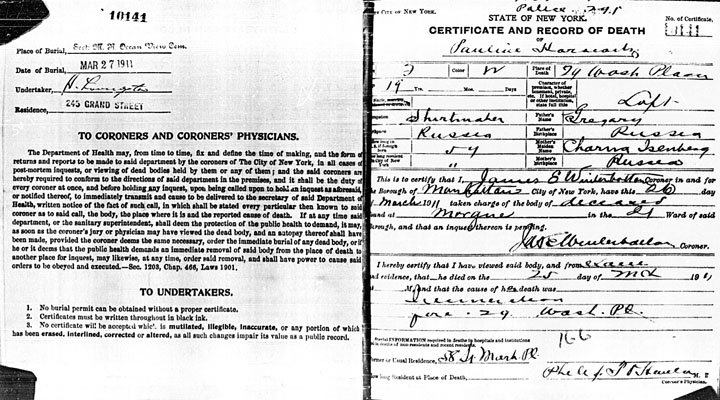 10141
Place of Burial, Sect. M. R Ocean View Cem.
Date of Burial, MAR 27 1911
Undertaker,
Residence, 245 GRAND STREET
TO CORONERS AND CORONERS' PHYSICIANS.
The Department of Health may, from time to time, fix and define the time of making, and the form of
returns and reports to be made to said department by the coroners of The City of New York, in all cases of
post-mortem inquests, or viewing of dead bodies held by them or any of them; and the said coroners are
hereby required to conform to the directions of said department in the premises, and it shall be the duty of
every coroner at once, and before holding any inquest, upon being called upon to hold an inquest as aforesaid,
or notified thereof, to immediately transmit and cause to be delivered to the secretary of said Department of
Health, written notice of the fact of such call, in which shall be stated every particular then known to said
coroner as to said call, the body, the place where it is and the reported cause of death. If at any time said
department, or the sanitary superintendent, shall deem the protection of the public health to demand, it may,
as soon as the coroner's jury or physician may have viewed the dead body, and an autopsy thereof shall have
been made, provided the coroner deems the same necessary, order the immediate burial of any dead body, or if
he or it deems that the public health demands an immediate removal of said body from the place of death to
another place for inquest, may likewise, at any time, order said removal, and shall have power to cause said
orders to be obeyed and executed.—Sec. 1203, Chap. 466, Laws 1901.
TO UNDERTAKERS.
1. No burial permit can be obtained without a proper certificate.
2. Certificates must be written throughout in black ink.
3. No certificate will be accepted which is mutilated, illegible, inaccurate, or any portion of which
has been erased, interlined, corrected or altered, as all such changes impair its value as a public record.
Police
CITY OF NEW YORK.
STATE OF NEW YORK.
No. of Certificate,
CERTIFICATE AND RECORD OF DEATH
10141
of
Pauline Horowitz
Color W Place of Death 29 Wash Place
19 Yrs. Mos. Days.
Character of premises, whether tenement, private, etc. If hotel, hospital or other institution, state full title Loft
Shirtmaker Father's Name Gregory
Russia Father's Birthplace Russia
5 y Mother's Name Charna Isenberg
" Mother's Birthplace Russia
This is to certify that I, James E Winterbottom Coroner in and for
the Borough of Manhattan City of New York, have this 26 day
March 1911 taken charge of the body of deceased
found at Morgue in the 21 Ward of said
Borough, and that an inquest thereon is pending.
Coroner.
I hereby certify that I have viewed said body, and from
and evidence, that he died on the 25 day of Mch 191
M and that the cause of h death was
Incineration
fire - 29 Wash. Pl.
166
Special INFORMATION required in deaths in hospitals and institutions
and in deaths of non-residents and recent residents.
Former or Usual Residence, 58 St Mark Pl.
How long Resident at Place of Death,
M. D
Coroner's Physician.